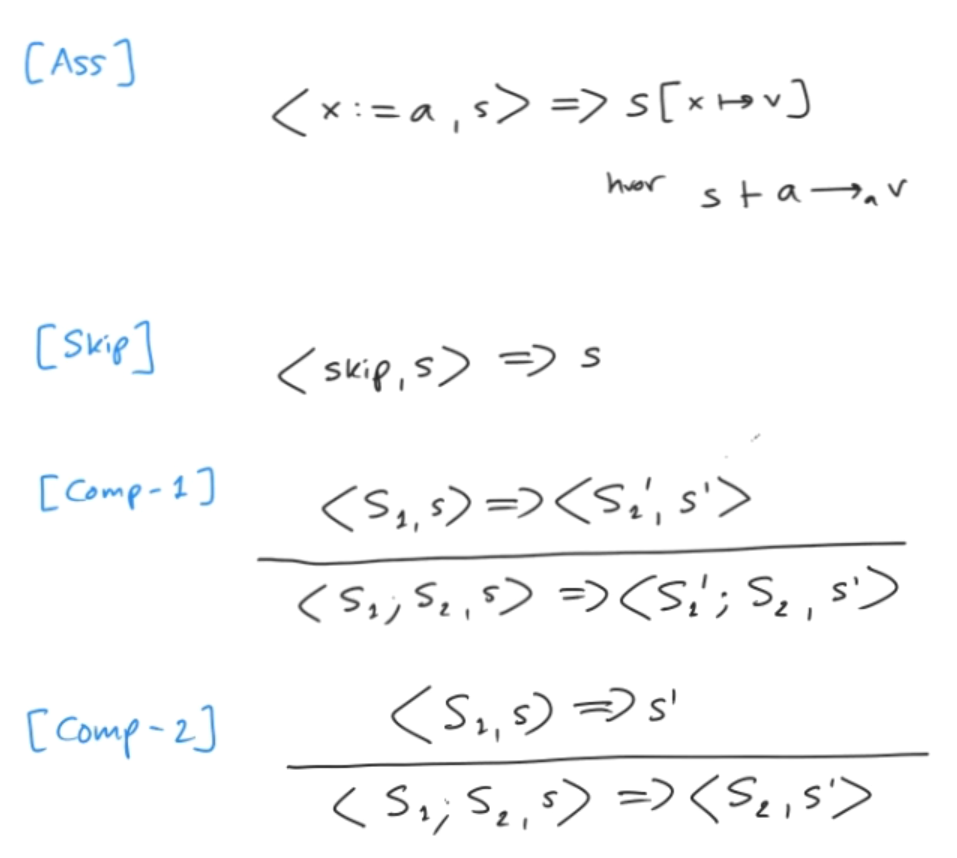 [Ass]
<x:=a, s> => s[x↦v]
hvor s ⊢ a →ₐ v
[Skip]
<skip, s> => s
[Comp-1]
<S₁, s> => <S₁', s'>
<S₁; S₂, s> => <S₁'; S₂, s'>
[Comp-2]
<S₁, s> => s'
<S₁; S₂, s> => <S₂, s'>